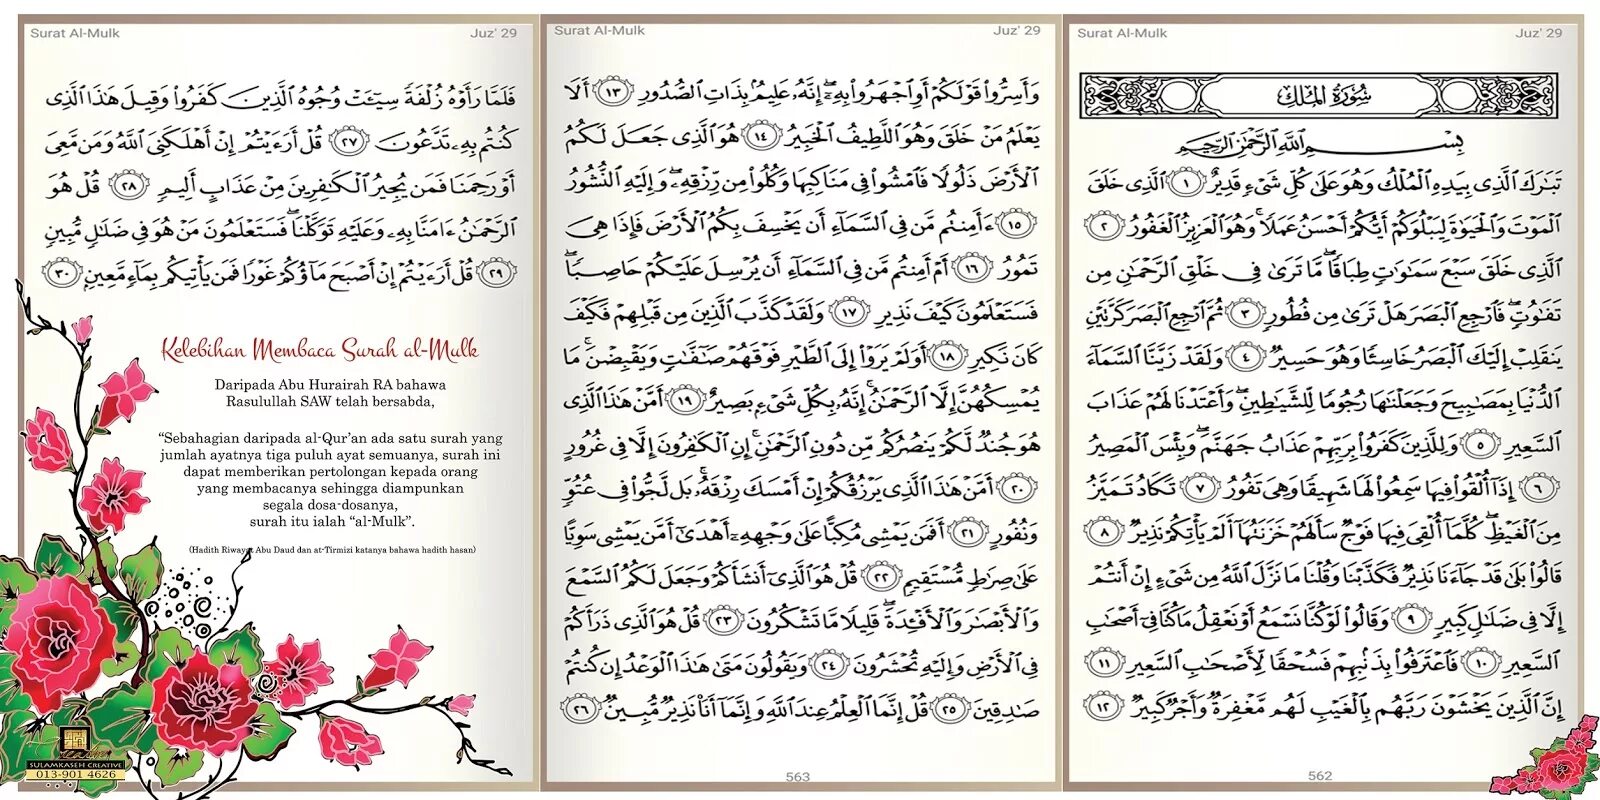 Surat Al-Mulk
Juz' 29
سُورَةُ المُلْكِ
بِسْمِ اللَّهِ الرَّحْمَٰنِ الرَّحِيمِ
تَبَٰرَكَ ٱلَّذِى بِيَدِهِ ٱلْمُلْكُ وَهُوَ عَلَىٰ كُلِّ شَىْءٍ قَدِيرٌ ١ ٱلَّذِى خَلَقَ
ٱلْمَوْتَ وَٱلْحَيَوٰةَ لِيَبْلُوَكُمْ أَيُّكُمْ أَحْسَنُ عَمَلًا ۚ وَهُوَ ٱلْعَزِيزُ ٱلْغَفُورُ ٢
ٱلَّذِى خَلَقَ سَبْعَ سَمَٰوَٰتٍ طِبَاقًا ۖ مَّا تَرَىٰ فِى خَلْقِ ٱلرَّحْمَٰنِ مِن
تَفَٰوُتٍ ۖ فَٱرْجِعِ ٱلْبَصَرَ هَلْ تَرَىٰ مِن فُطُورٍ ٣ ثُمَّ ٱرْجِعِ ٱلْبَصَرَ كَرَّتَيْنِ
يَنقَلِبْ إِلَيْكَ ٱلْبَصَرُ خَاسِئًا وَهُوَ حَسِيرٌ ٤ وَلَقَدْ زَيَّنَّا ٱلسَّمَآءَ
ٱلدُّنْيَا بِمَصَٰبِيحَ وَجَعَلْنَٰهَا رُجُومًا لِّلشَّيَٰطِينِ ۖ وَأَعْتَدْنَا لَهُمْ عَذَابَ
ٱلسَّعِيرِ ٥ وَلِلَّذِينَ كَفَرُوا۟ بِرَبِّهِمْ عَذَابُ جَهَنَّمَ ۖ وَبِئْسَ ٱلْمَصِيرُ
٦ إِذَآ أُلْقُوا۟ فِيهَا سَمِعُوا۟ لَهَا شَهِيقًا وَهِىَ تَفُورُ ٧ تَكَادُ تَمَيَّزُ
مِنَ ٱلْغَيْظِ ۖ كُلَّمَآ أُلْقِىَ فِيهَا فَوْجٌ سَأَلَهُمْ خَزَنَتُهَآ أَلَمْ يَأْتِكُمْ نَذِيرٌ ٨
قَالُوا۟ بَلَىٰ قَدْ جَآءَنَا نَذِيرٌ فَكَذَّبْنَا وَقُلْنَا مَا نَزَّلَ ٱللَّهُ مِن شَىْءٍ إِنْ أَنتُمْ
إِلَّا فِى ضَلَٰلٍ كَبِيرٍ ٩ وَقَالُوا۟ لَوْ كُنَّا نَسْمَعُ أَوْ نَعْقِلُ مَا كُنَّا فِىٓ أَصْحَٰبِ
ٱلسَّعِيرِ ١٠ فَٱعْتَرَفُوا۟ بِذَنۢبِهِمْ فَسُحْقًا لِّأَصْحَٰبِ ٱلسَّعِيرِ ١١
إِنَّ ٱلَّذِينَ يَخْشَوْنَ رَبَّهُم بِٱلْغَيْبِ لَهُم مَّغْفِرَةٌ وَأَجْرٌ كَبِيرٌ ١٢
562
Surat Al-Mulk
Juz' 29
وَأَسِرُّوا۟ قَوْلَكُمْ أَوِ ٱجْهَرُوا۟ بِهِۦٓ ۖ إِنَّهُۥ عَلِيمٌۢ بِذَاتِ ٱلصُّدُورِ ١٣ أَلَا
يَعْلَمُ مَنْ خَلَقَ وَهُوَ ٱللَّطِيفُ ٱلْخَبِيرُ ١٤ هُوَ ٱلَّذِى جَعَلَ لَكُمُ
ٱلْأَرْضَ ذَلُولًا فَٱمْشُوا۟ فِى مَنَاكِبِهَا وَكُلُوا۟ مِن رِّزْقِهِۦ ۖ وَإِلَيْهِ ٱلنُّشُورُ
١٥ ءَأَمِنتُم مَّن فِى ٱلسَّمَآءِ أَن يَخْسِفَ بِكُمُ ٱلْأَرْضَ فَإِذَا هِىَ
تَمُورُ ١٦ أَمْ أَمِنتُم مَّن فِى ٱلسَّمَآءِ أَن يُرْسِلَ عَلَيْكُمْ حَاصِبًا ۖ
فَسَتَعْلَمُونَ كَيْفَ نَذِيرِ ١٧ وَلَقَدْ كَذَّبَ ٱلَّذِينَ مِن قَبْلِهِمْ فَكَيْفَ
كَانَ نَكِيرِ ١٨ أَوَلَمْ يَرَوْا۟ إِلَى ٱلطَّيْرِ فَوْقَهُمْ صَٰٓفَّٰتٍ وَيَقْبِضْنَ ۚ مَا
يُمْسِكُهُنَّ إِلَّا ٱلرَّحْمَٰنُ ۚ إِنَّهُۥ بِكُلِّ شَىْءٍۭ بَصِيرٌ ١٩ أَمَّنْ هَٰذَا ٱلَّذِى
هُوَ جُندٌ لَّكُمْ يَنصُرُكُم مِّن دُونِ ٱلرَّحْمَٰنِ ۚ إِنِ ٱلْكَٰفِرُونَ إِلَّا فِى غُرُورٍ
٢٠ أَمَّنْ هَٰذَا ٱلَّذِى يَرْزُقُكُمْ إِنْ أَمْسَكَ رِزْقَهُۥ ۚ بَل لَّجُّوا۟ فِى عُتُوٍّ
وَنُفُورٍ ٢١ أَفَمَن يَمْشِى مُكِبًّا عَلَىٰ وَجْهِهِۦٓ أَهْدَىٰٓ أَمَّن يَمْشِى سَوِيًّا
عَلَىٰ صِرَٰطٍ مُّسْتَقِيمٍ ٢٢ قُلْ هُوَ ٱلَّذِىٓ أَنشَأَكُمْ وَجَعَلَ لَكُمُ ٱلسَّمْعَ
وَٱلْأَبْصَٰرَ وَٱلْأَفْـِٔدَةَ ۖ قَلِيلًا مَّا تَشْكُرُونَ ٢٣ قُلْ هُوَ ٱلَّذِى ذَرَأَكُمْ
فِى ٱلْأَرْضِ وَإِلَيْهِ تُحْشَرُونَ ٢٤ وَيَقُولُونَ مَتَىٰ هَٰذَا ٱلْوَعْدُ إِن كُنتُمْ
صَٰدِقِينَ ٢٥ قُلْ إِنَّمَا ٱلْعِلْمُ عِندَ ٱللَّهِ وَإِنَّمَآ أَنَا۠ نَذِيرٌ مُّبِينٌ ٢٦
563
Surat Al-Mulk
Juz' 29
فَلَمَّا رَأَوْهُ زُلْفَةً سِيٓـَٔتْ وُجُوهُ ٱلَّذِينَ كَفَرُوا۟ وَقِيلَ هَٰذَا ٱلَّذِى
كُنتُم بِهِۦ تَدَّعُونَ ٢٧ قُلْ أَرَءَيْتُمْ إِنْ أَهْلَكَنِىَ ٱللَّهُ وَمَن مَّعِىَ
أَوْ رَحِمَنَا فَمَن يُجِيرُ ٱلْكَٰفِرِينَ مِنْ عَذَابٍ أَلِيمٍ ٢٨ قُلْ هُوَ
ٱلرَّحْمَٰنُ ءَامَنَّا بِهِۦ وَعَلَيْهِ تَوَكَّلْنَا ۖ فَسَتَعْلَمُونَ مَنْ هُوَ فِى ضَلَٰلٍ مُّبِينٍ
٢٩ قُلْ أَرَءَيْتُمْ إِنْ أَصْبَحَ مَآؤُكُمْ غَوْرًا فَمَن يَأْتِيكُم بِمَآءٍ مَّعِينٍۭ ٣٠
Kelebihan Membaca Surah al-Mulk
Daripada Abu Hurairah RA bahawa
Rasulullah SAW telah bersabda,
“Sebahagian daripada al-Qur’an ada satu surah yang
jumlah ayatnya tiga puluh ayat semuanya, surah ini
dapat memberikan pertolongan kepada orang
yang membacanya sehingga diampunkan
segala dosa-dosanya,
surah itu ialah “al-Mulk”.
(Hadith Riwayat Abu Daud dan at-Tirmizi katanya bahawa hadith hasan)
SULAMKASEH CREATIVE
013-901 4626